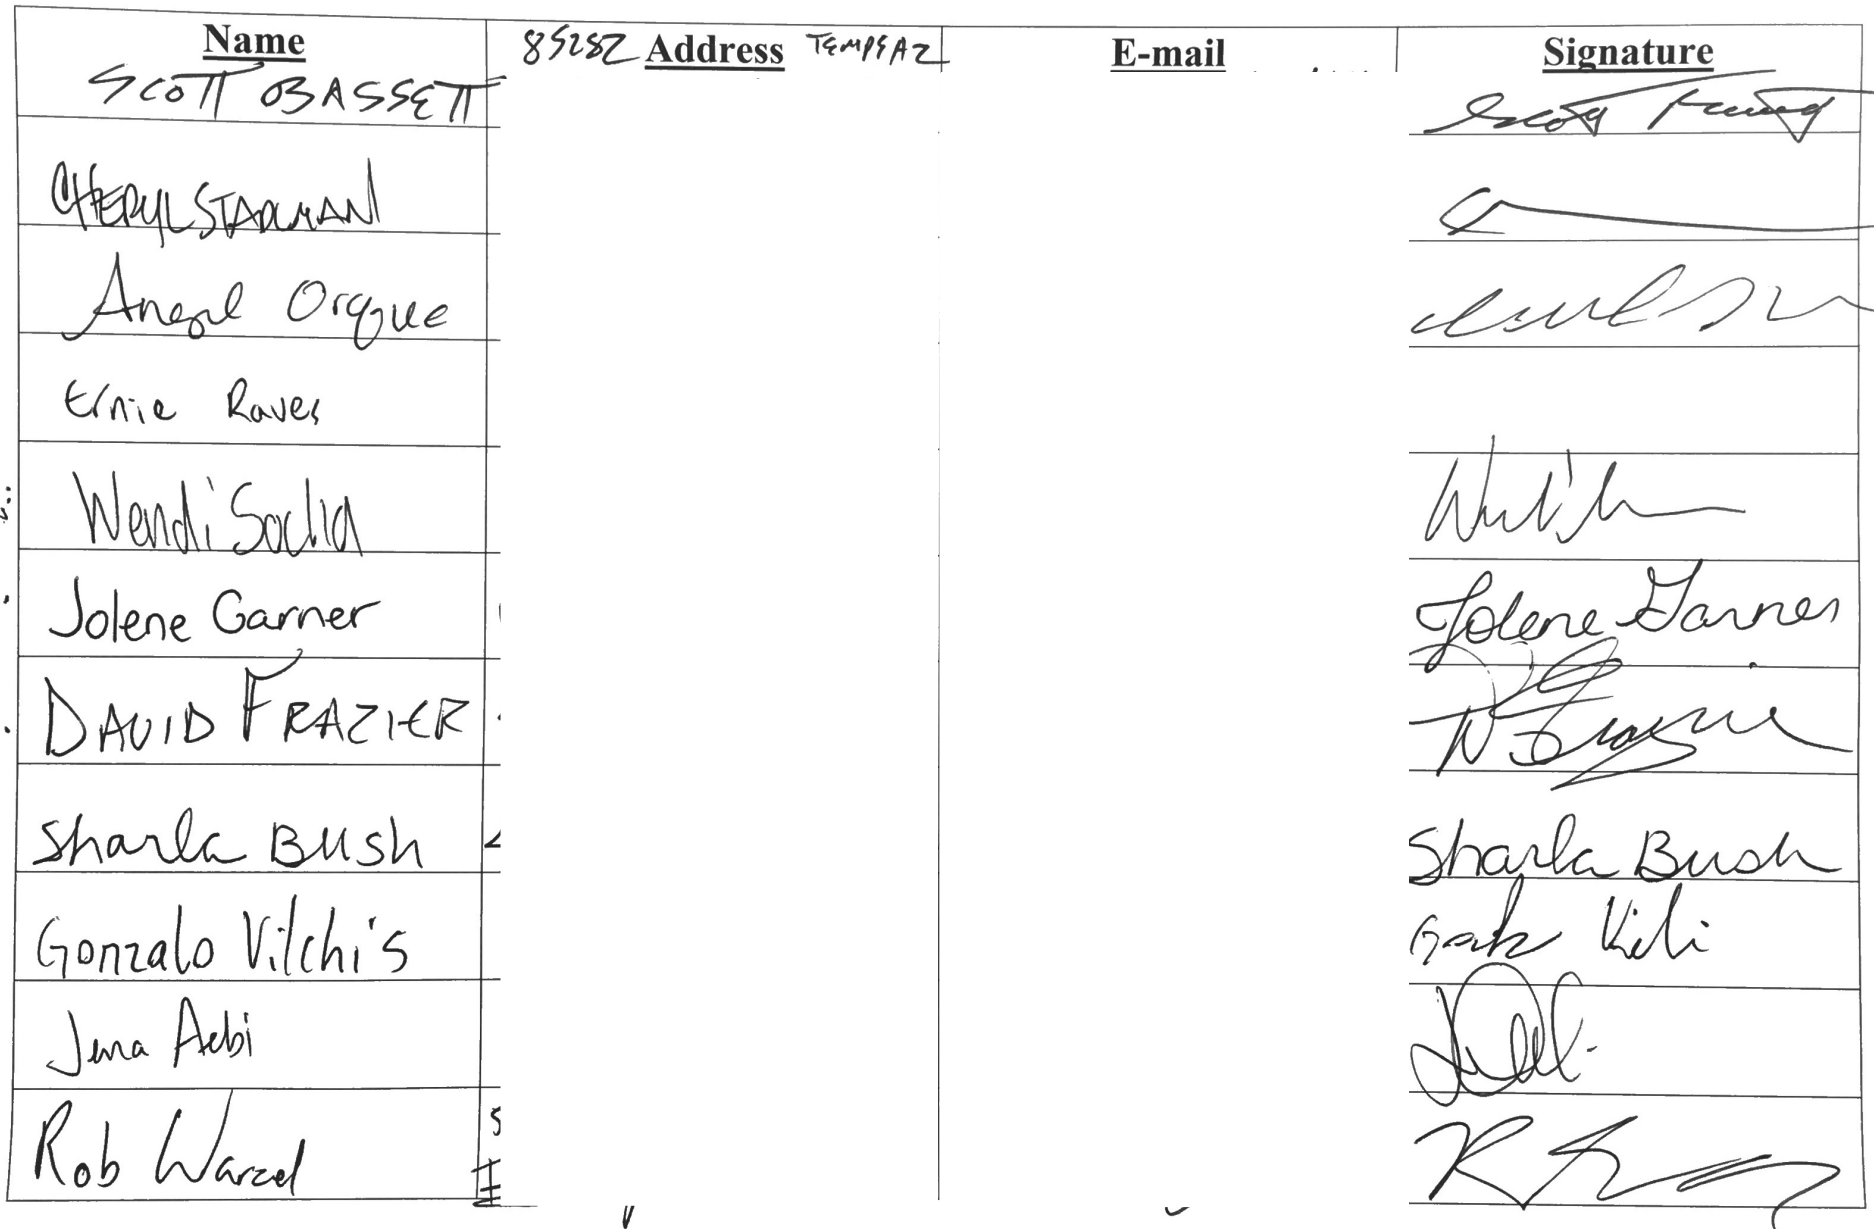 Name 85282 Address TEMPE AZ E-mail Signature
SCOTT BASSETT
CHERYL STADLMAN
Angel Orque
Ernie Raves
Wendi Socha
Jolene Garner Jolene Garner
DAVID FRAZIER D Frazier
Sharla Bush Sharla Bush
Gonzalo Vilchis
Jena Aebi
Rob Warzel